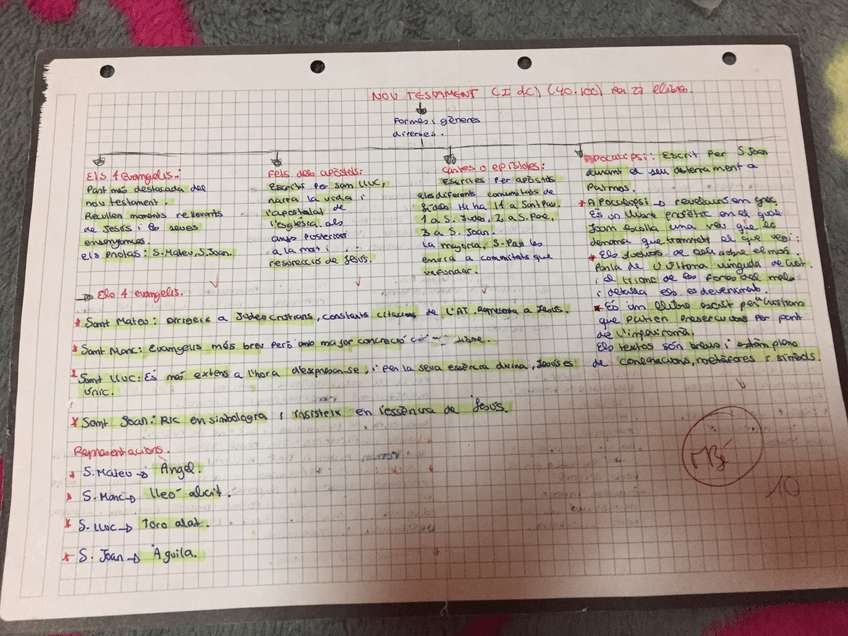 NOU TESTAMENT (I dC) (40-100) rer 27 llibres.
Formes i gèneres
diverses.
Els 4 evangelis:
Part més destacada del
nou testament.
Recullen moments rellevants
de Jesús i les seves
ensenyances.
els prolas: S. Mateu, S. Joan.
Fets dels apòstols:
Escrits per Sant LLUC,
narra la vida i
l'apostolat de
l'església als
anys posteriors
a la mort i
resurecció de Jesús.
Cartes o epístoles:
Escrites per apòstols
a les diferents comunitats de
fidels. Hi ha 14 a Sant Pau,
1 a S. Judes, 2 a S. Pere,
3 a S. Joan.
La majoria, S. Pau les
envià a comunitats que
va fundar.
Apocalipsi: Escrit per S. Joan
durant el seu desterrament a
Patmos.
* Apocalipsi → revelacions en grec
És un llibre profètic en el qual
Joan escolta una veu que li
demana que transmeti el que veu:
* els judicis de Déu sobre el món
Parla de l'última vinguda de Crist
i el triomf de les forces del mal
i detalla els esdeveniments.
* És un llibre escrit per cristians
que patien persecucions per part
de l'imperi romà.
Els textos són breus i estan plens
de comparacions, metàfores i símbols.
→ Els 4 evangelis.
* Sant Mateu: Dirigeix a Judeocristians, constants citacions de l'AT. Representa a Jesús.
* Sant Marc: Evangelis més breu però amb major concreció
* Sant LLUC: És més extens a l'hora d'expressar-se, i per la seva essència divina, Jesús és
únic.
* Sant Joan: Ric en simbologia i insisteix en l'essència de Jesús.
Representacions.
* S. Mateu → Àngel.
* S. Marc → lleó alat.
* S. LLUC → Toro alat.
* S. Joan → Àguila.
MBé
10